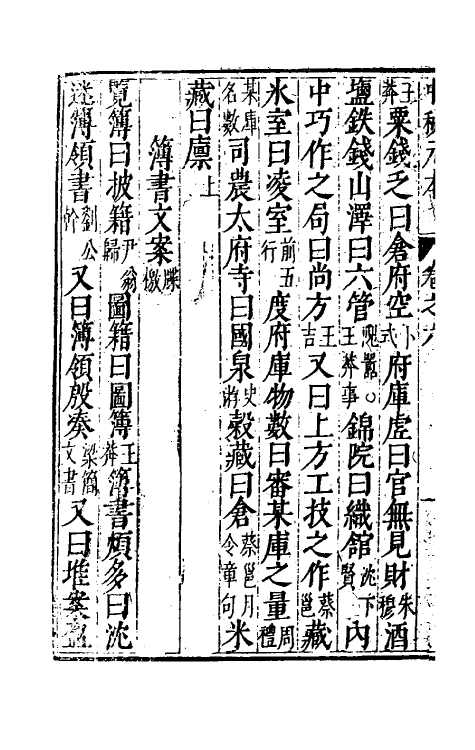 卷之六
王莽粟錢乏曰倉府空卜式府庫虛曰官無見財朱穆酒
鹽鉄錢山澤曰六管隗囂○王莽事錦院曰織舘沈下賢内
中巧作之局曰尚方王吉又曰上方工技之作蔡邕藏
氷室曰凌室前五行度府庫物數曰審某庫之量周禮
某庫名數司農太府寺曰國泉史游糓藏曰倉蔡邕月令章句米
藏曰廪上
簿書文案牒檄
覽簿曰披籍尹翁歸圖籍曰圖簿王莽簿書煩多曰沈
迷簿領書劉公幹又曰簿領殷湊梁簡文書又曰堆案盈